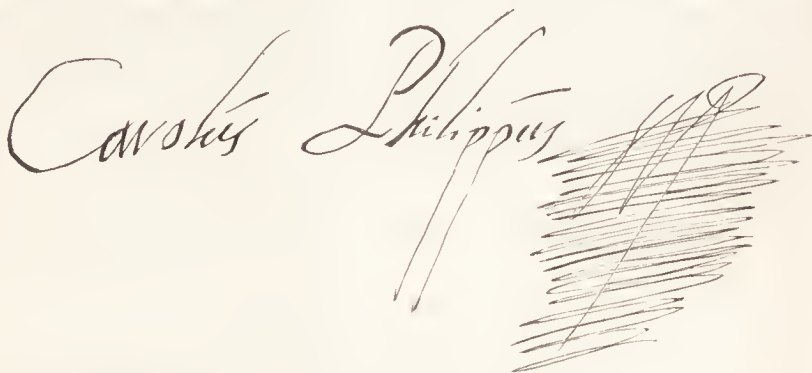 Carolus Philippus